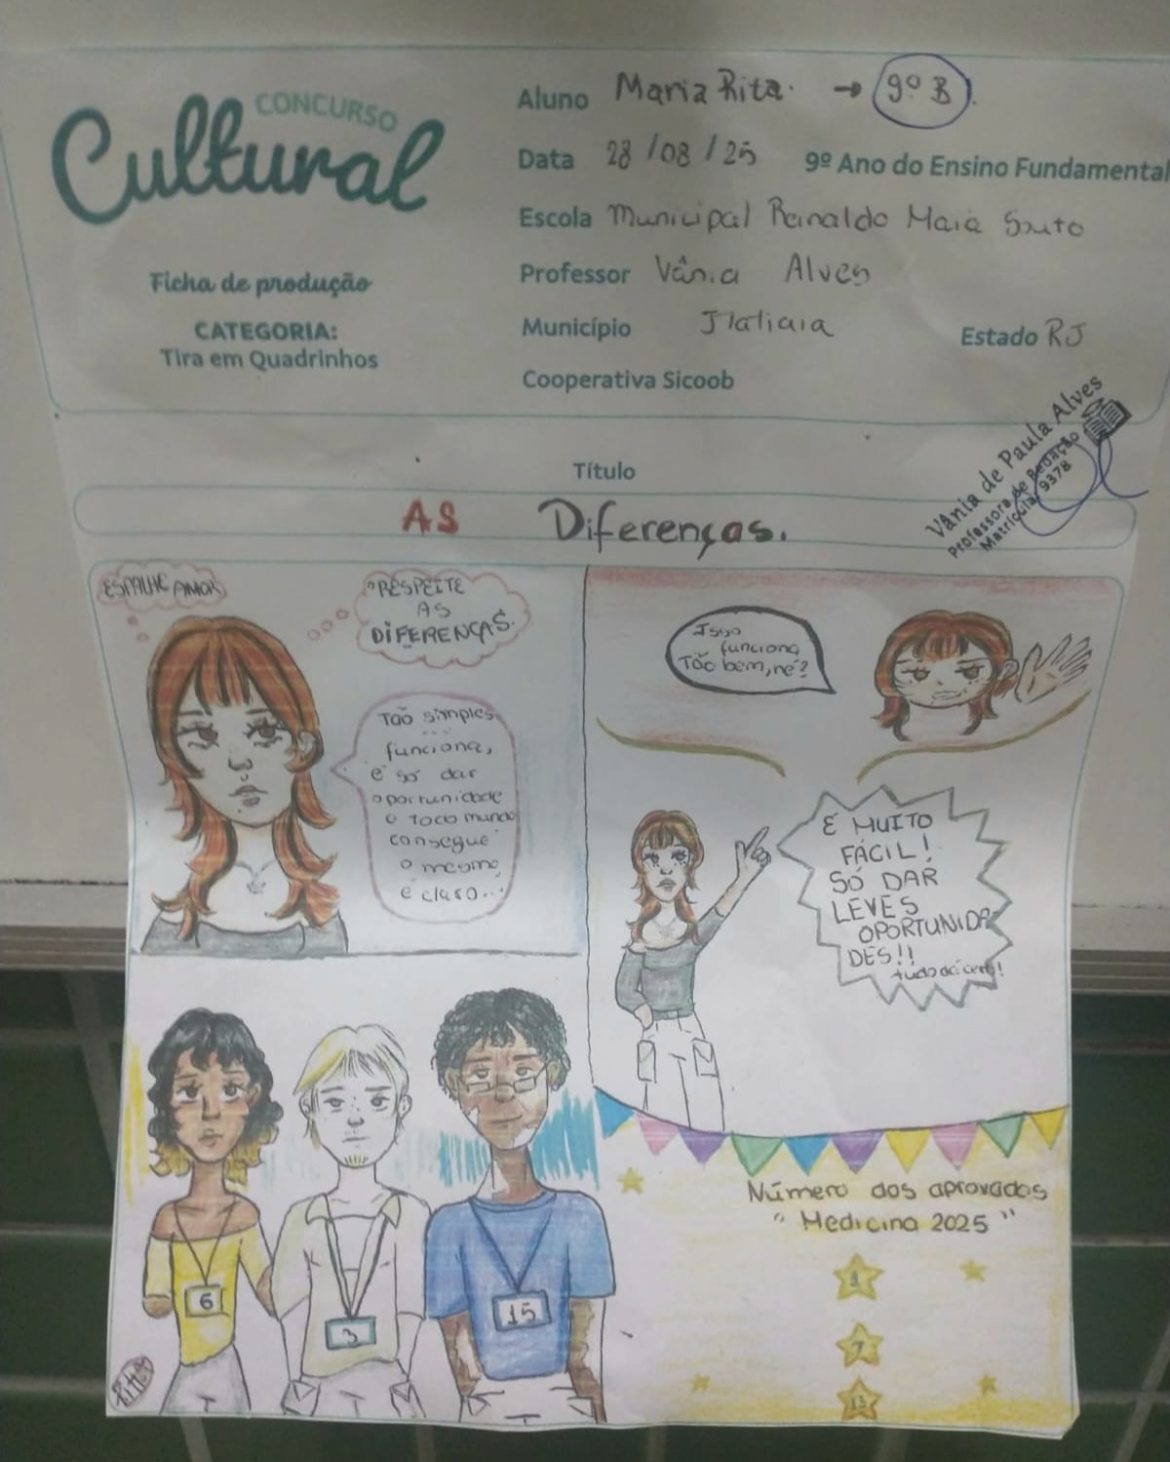 CONCURSO
Cultural
Ficha de produção
CATEGORIA:
Tira em Quadrinhos
Aluno Maria Rita. → 9º B.
Data 28/08/25 9º Ano do Ensino Fundamental
Escola Municipal Reinaldo Maia Souto
Professor Vânia Alves
Município Itatiaia Estado RJ
Cooperativa Sicoob
Vânia de Paula Alves
Professora de Redação
Matrícula 9378
Título
AS Diferenças.
ESPALHE AMOR
"RESPEITE
AS
DIFERENÇAS.
Tão simples
funciona,
é só dar
oportunidade
e todo mundo
consegue
o mesmo
é claro...
Isso
funciona
Tão bem, né?
E MUITO
FÁCIL!
SÓ DAR
LEVES
OPORTUNIDA
DES!!
tudo dá certo!
6
3
15
Número dos aprovados
"Medicina 2025"
7